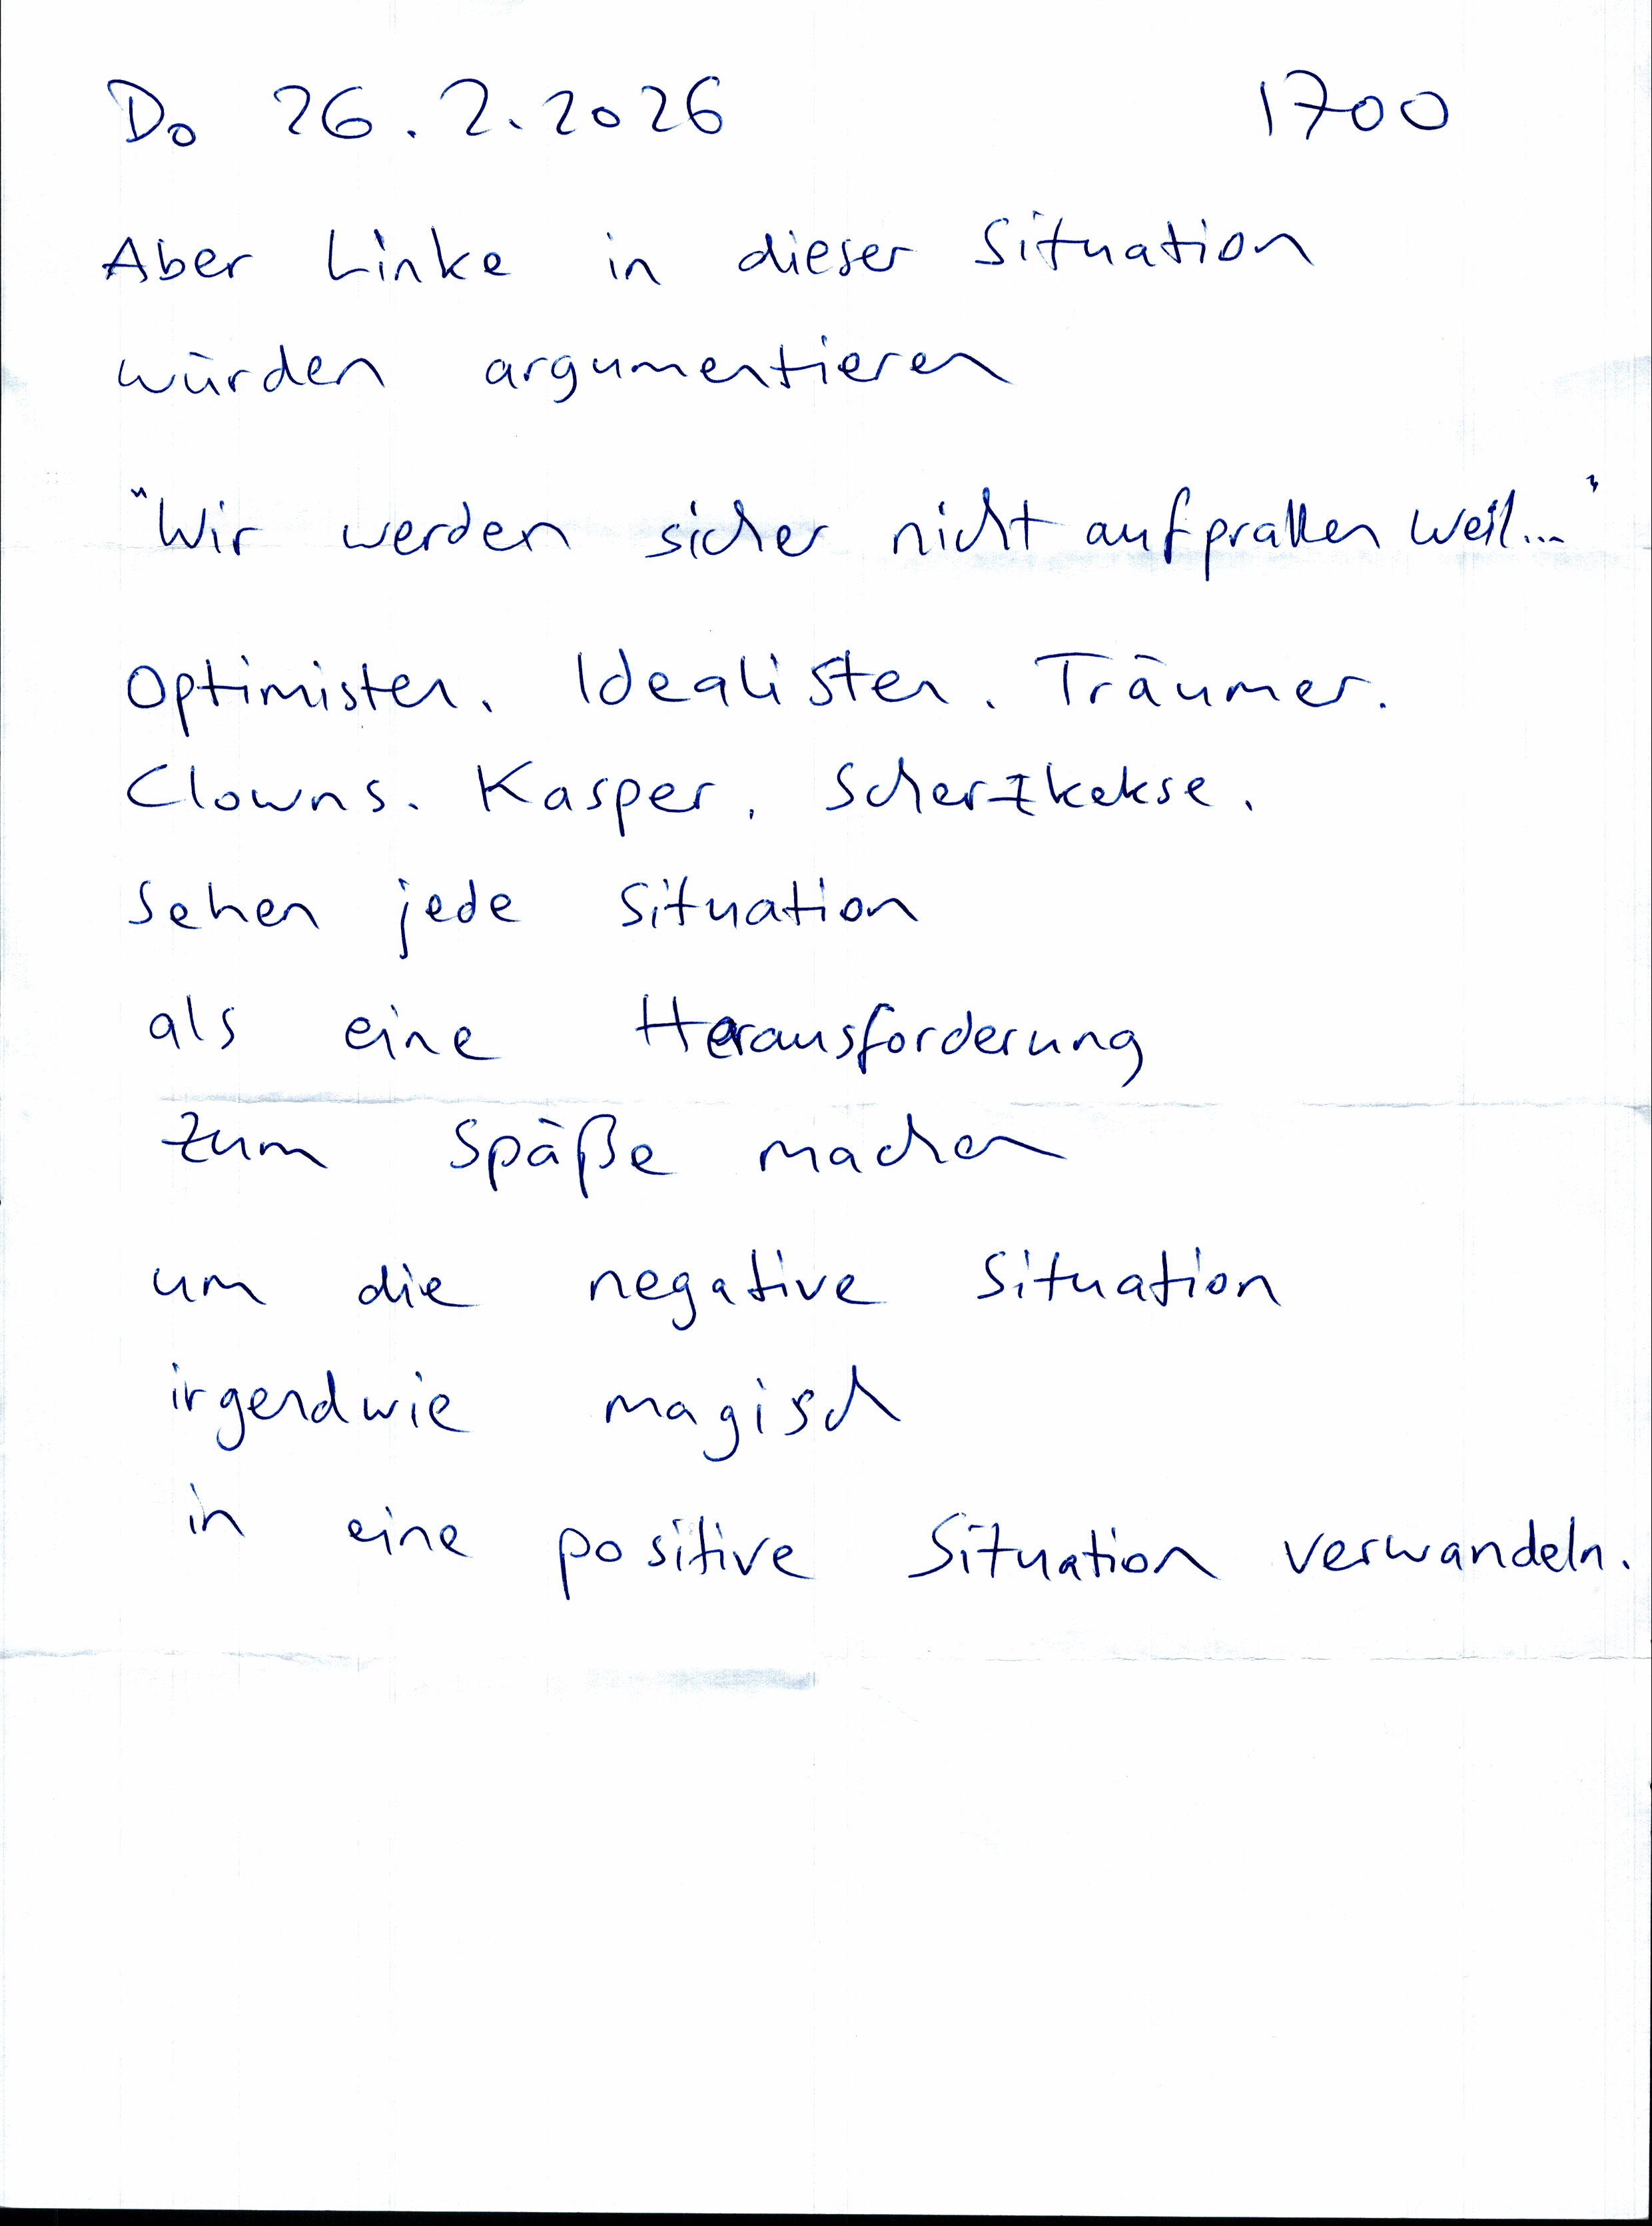 Do 26.2.2026 1700
Aber Linke in dieser Situation
würden argumentieren
"Wir werden sicher nicht aufprallen weil..."
Optimisten. Idealisten. Träumer.
Clowns. Kasper. Scherzkekse.
Sehen jede Situation
als eine Herausforderung
zum Späße machen
um die negative Situation
irgendwie magisch
in eine positive Situation verwandeln.